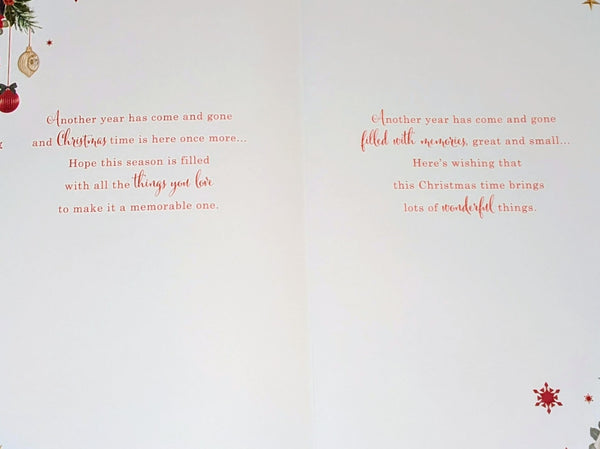 Another year has come and gone
and Christmas time is here once more...
Hope this season is filled
with all the things you love
to make it a memorable one.
Another year has come and gone
filled with memories, great and small...
Here's wishing that
this Christmas time brings
lots of wonderful things.